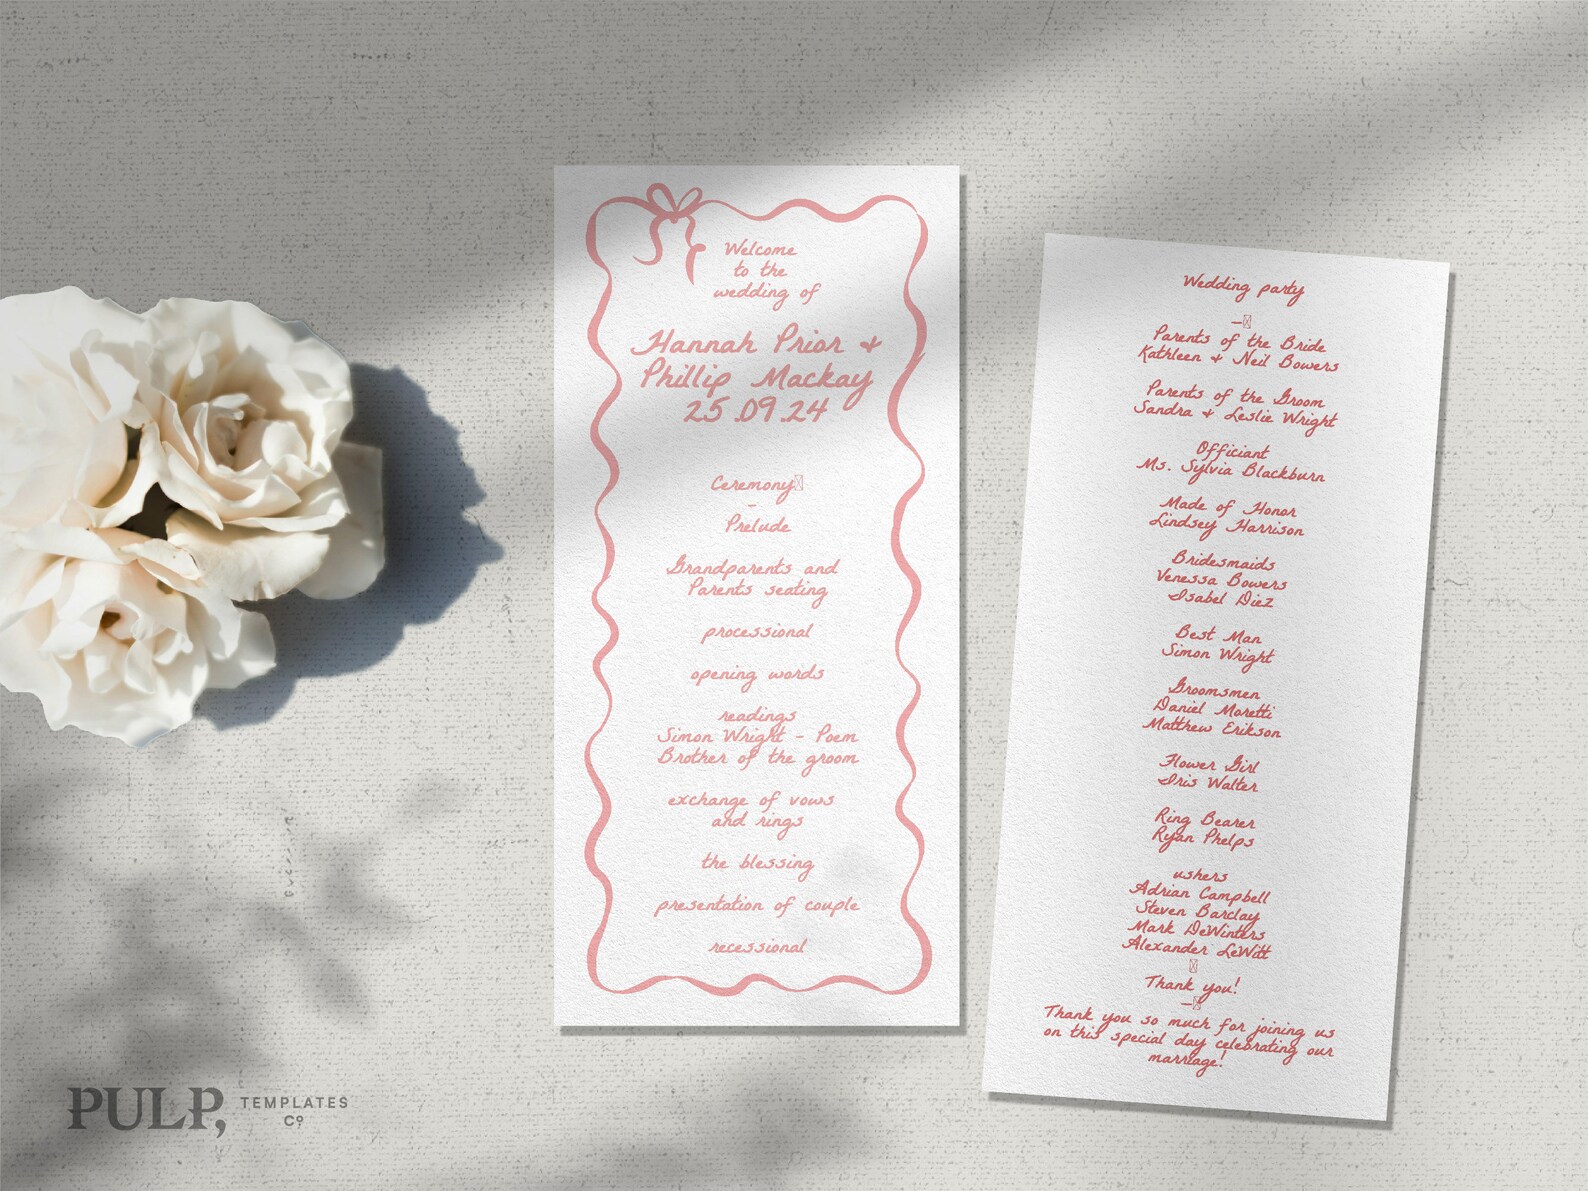 Welcome
to the
wedding of
Hannah Prior &
Phillip Mackay
25.09.24
Ceremony
-
Prelude
Grandparents and
Parents seating
processional
opening words
readings
Simon Wright - Poem
Brother of the groom
exchange of vows
and rings
the blessing
presentation of couple
recessional
Wedding party
—
Parents of the Bride
Kathleen & Neil Bowers
Parents of the Groom
Sandra & Leslie Wright
Officiant
Ms. Sylvia Blackburn
Made of Honor
Lindsey Harrison
Bridesmaids
Venessa Bowers
Isabel Diez
Best Man
Simon Wright
Groomsmen
Daniel Moretti
Matthew Erikson
Flower Girl
Iris Walter
Ring Bearer
Ryan Phelps
ushers
Adrian Campbell
Steven Barclay
Mark DeWinters
Alexander LeWitt
Thank you!
—
Thank you so much for joining us
on this special day celebrating our
marriage!
PULP, TEMPLATES
Co